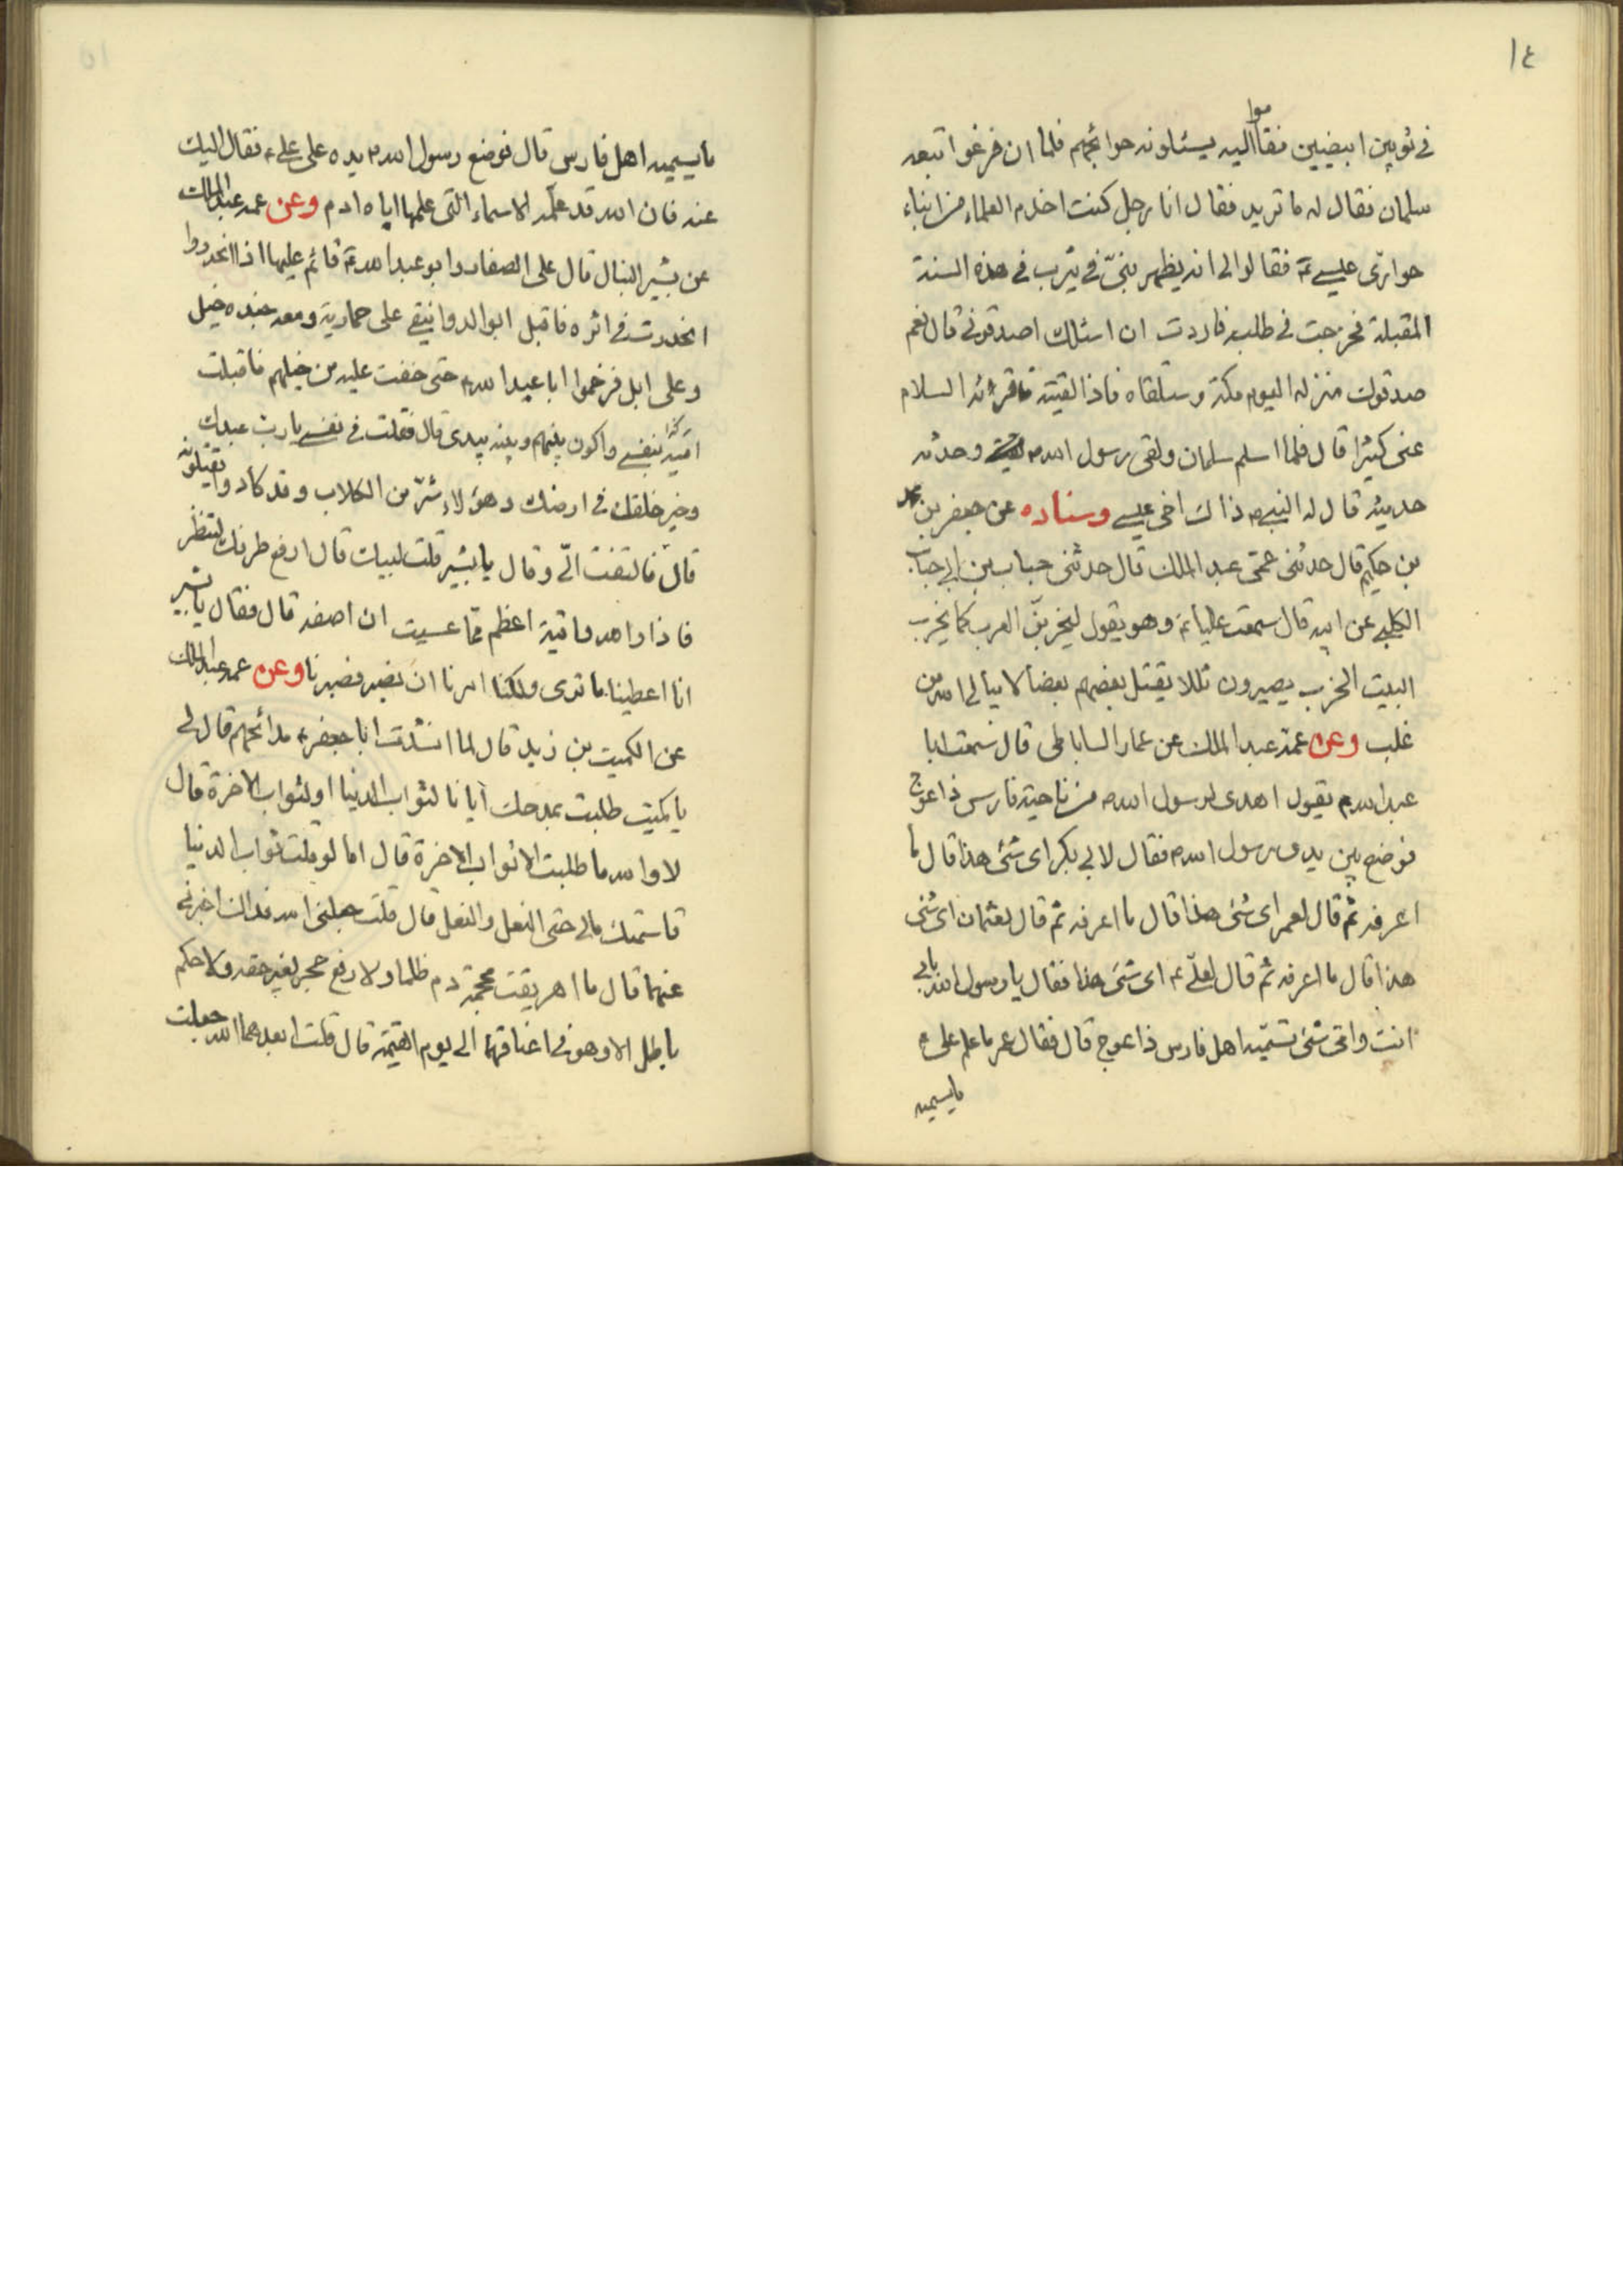 ١٤
في ثوبين ابيضين فقاموا اليه يسئلونه حوائجهم فلما ان فرغوا تبعه
سلمان فقال له ما تريد فقال انا رجل كنت اخدم العلماء من ابناء
حوارى عيسى ع فقالوا لى انه يظهر بنبىّ فى يثرب فى هذه السنة
المقبلة فخرجت فى طلبه فاردت ان اسئلك اصدقونى قال نعم
صدقوك منزله اليوم مكة وستلقاه فاذا لقيته فاقرائه السلام
عنى كثيرا قال فلما اسلم سلمان ولقى رسول الله م وحدثه
حديثه قال له النبي م ذاك اخى عيسى وسناده عن جعفر بن محمد
بن حكيم قال حدثنى عمى عبد الملك قال حدثنى حباب بن ابى حباب
الكلبى عن ابيه قال سمعت عليا ع وهو يقول ليخربنّ العرب كما يخرب
البيت الخرب يصيرون ثللا يقتل بعضهم بعضا لا يبالى الله من
غلب وعن عمه عبد الملك عن عمار الساباطى قال سمعت ابا
عبد الله م يقول اهدى لرسول الله م من ناحية فارس ذا عوج
فوضع بين يدى رسول الله م فقال لابى بكر اى شئ هذا قال ما
اعرفه ثم قال لعمر اى شئ هذا قال ما اعرفه ثم قال لعثمان اى شئ
هذا قال ما اعرفه ثم قال لعلىّ ع اى شئ هذا فقال يا رسول الله بابى
انت وامى شئ تسميه اهل فارس ذا عوج قال فقال عمر ما علم على م
ما يسميه
ما يسميه اهل فارس قال فوضع رسول الله م يده على على ع فقال اليك
عنه فان الله قد علّمه الاسماء التى علمها اياه ادم وعن عمه عبد الملك
عن بشير النبال قال على الصفا وابو عبد الله ع قائم عليها اذا انحدروا
انحدرت فى اثره فاقبل ابو الدوانيق على حمارية ومعه جنده خيل
وعلى ابل فزحموا ابا عبد الله م حتى خفت عليه من خيلهم فاقبلت
بنفسى واكون بينهم وبينه بيدى قال فقلت فى نفسى يا رب عبدك
وخير خلقك فى ارضك وهؤلاء شرّ من الكلاب وقد كادوا يقتلونه
قال فالتفت الىّ وقال يا بشير قلت لبيك قال ارفع طرفك لتنظر
فاذا والله واقية اعظم مما عسيت ان اصفه قال فقال يا بشير
انا اعطينا ما ترى ولكنا امرنا ان نصبر فصبرنا وعن عمه عبد الملك
عن الكميت بن زيد قال لما انشدت ابا جعفر ع مدائحهم قال لى
يا كميت طلبت بمدحك ايانا لثواب الدنيا او لثواب الاخرة قال
لا والله ما طلبت الا ثواب الاخرة قال اما لو قلت ثواب الدنيا
قاسمتك مالى حتى النعل والنعل قال قلت جعلنى الله فداك اخبرنى
عنهما قال ما اهريقت محجمة دم ظلما ولا رفع حجر لغير حقه ولا حكم
باطل الا وهو فى اعناقهما الى يوم القيمة قال قلت ابعدهما الله جعلت